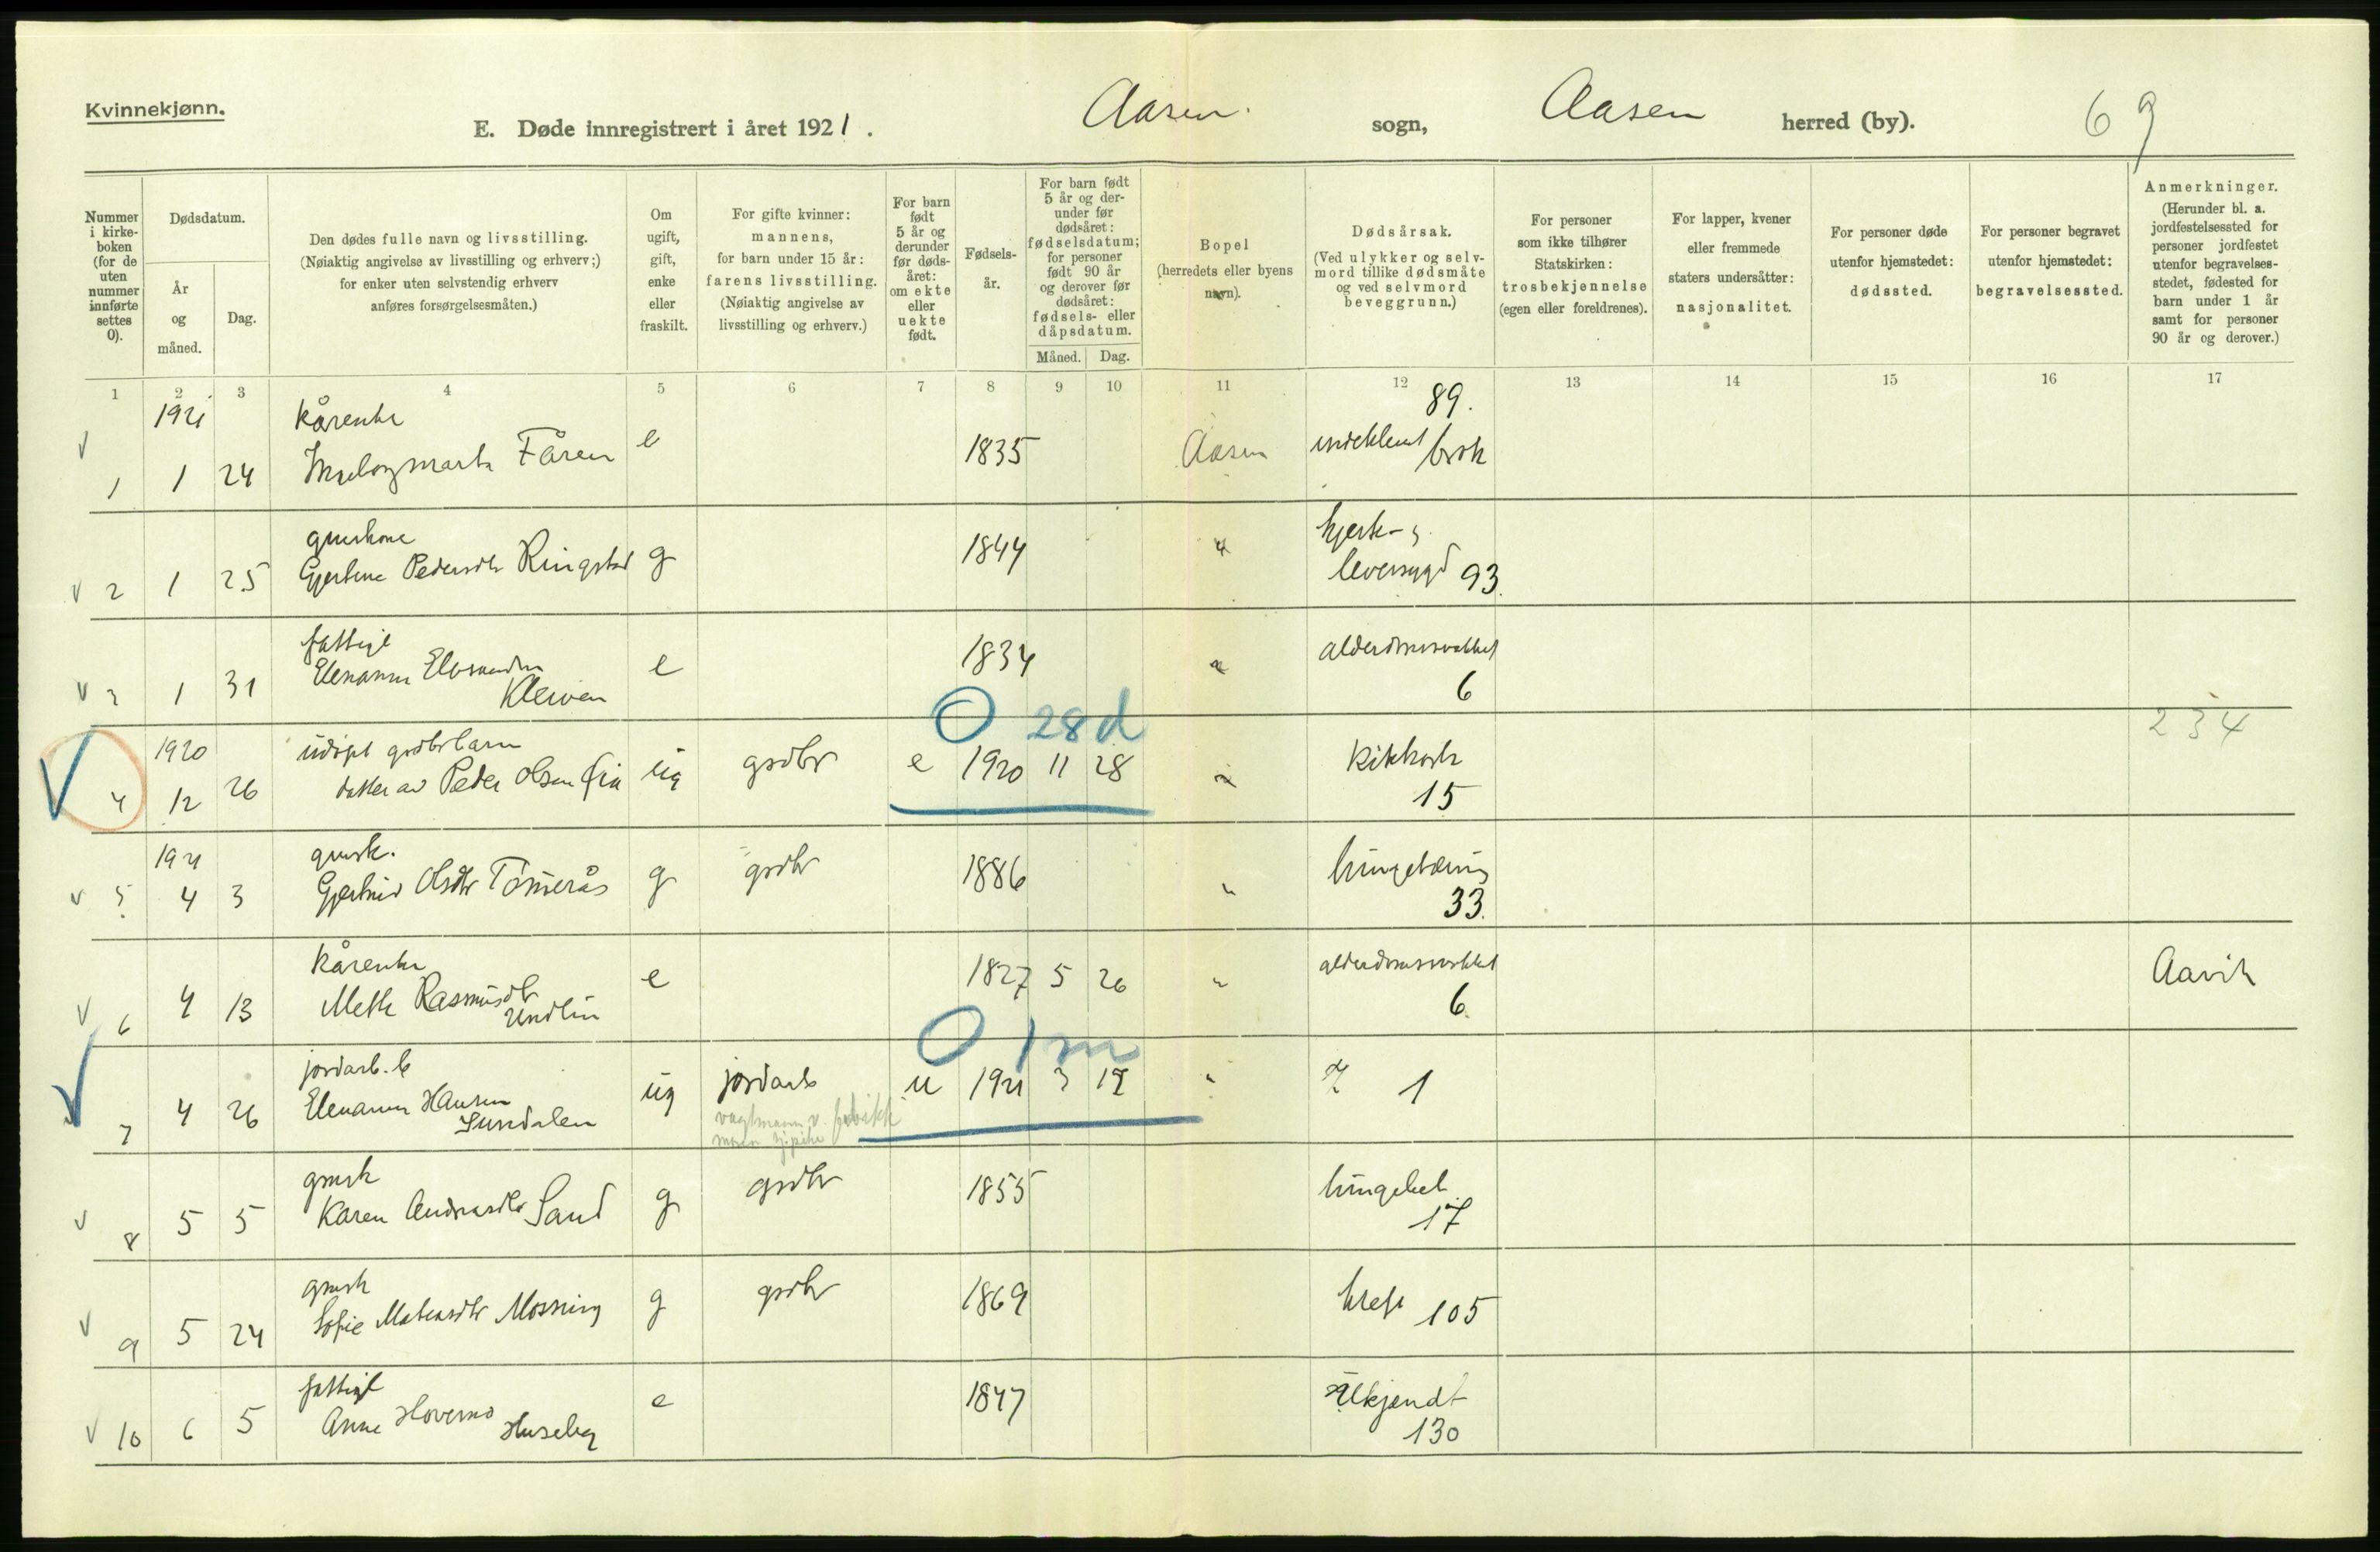 Kvinnekjønn.
E. Døde innregistrert i året 1921. Aasen sogn, Aasen herred (by). 69
Nummer i kirke-boken (for de uten nummer innførte settes 0).
Dødsdatum.
År og måned.
Dag.
Den dødes fulle navn og livsstilling.
(Nøiaktig angivelse av livsstilling og erhverv;)
for enker uten selvstendig erhverv
anføres forsørgelsesmåten.)
Om ugift, gift, enke eller fraskilt.
For gifte kvinner:
mannens,
for barn under 15 år:
farens livsstilling.
(Nøiaktig angivelse av
livsstilling og erhverv.)
For barn født 5 år og derunder før døds-året: om ekte eller uekte født.
Fødsels-år.
For barn født 5 år og der-under før dødsåret: fødselsdatum; for personer født 90 år og derover før dødsåret: fødsels- eller dåpsdatum.
Måned. Dag.
Bopel
(herredets eller byens navn).
Dødsårsak.
(Ved ulykker og selv-mord tillike dødsmåte og ved selvmord beveggrunn.)
For personer
som ikke tilhører
Statskirken:
trosbekjennelse
(egen eller foreldrenes).
For lapper, kvener
eller fremmede
staters undersåtter:
nasjonalitet.
For personer døde
utenfor hjemstedet:
dødssted.
For personer begravet
utenfor hjemstedet:
begravelsessted.
Anmerkninger.
(Herunder bl. a. jordfestelsessted for personer jordfestet utenfor begravelses-stedet, fødested for barn under 1 år samt for personer 90 år og derover.)
1 2 3 4 5 6 7 8 9 10 11 12 13 14 15 16 17
1921 kårenke 89.
1 1 24 Fåren e 1835 Aasen indeklemt brok
gmskone hjerte- &
2 1 25 Pedersdtr Ringstad g 1844 " leversygd 93.
fattigl
3 1 31 Elenanna e 1834 " alderdomssvakhet
Kleiven 6
0 28d 234
1920 udøpt grdbrbarn
4 12 26 datter av Peder Olsen ug grdbr e 1920 11 28 " Kikhoste
15
1921 gmsk.
5 4 3 Gjertrud Olsdtr Tømerås g grdbr 1886 " lungetæring
33.
kårenke
6 4 13 Mette Rasmusdtr e 1827 5 26 " alderdomssvakhet Aavik
Undlin 6.
0 1 m
jordarb. b
7 4 26 Elenanna Hansen ug jordarb u 1921 3 19 " ? 1
Sundalen
gmsk
8 5 5 Karen Andreasdtr Sand g grdbr 1855 lungebet.
17
gmsk
9 5 24 Sofie Mateasdtr Mossing g grdbr 1869 kreft 105
fattigl
10 6 5 Anne Hovemo e 1847 Ukjendt
Huseby 130